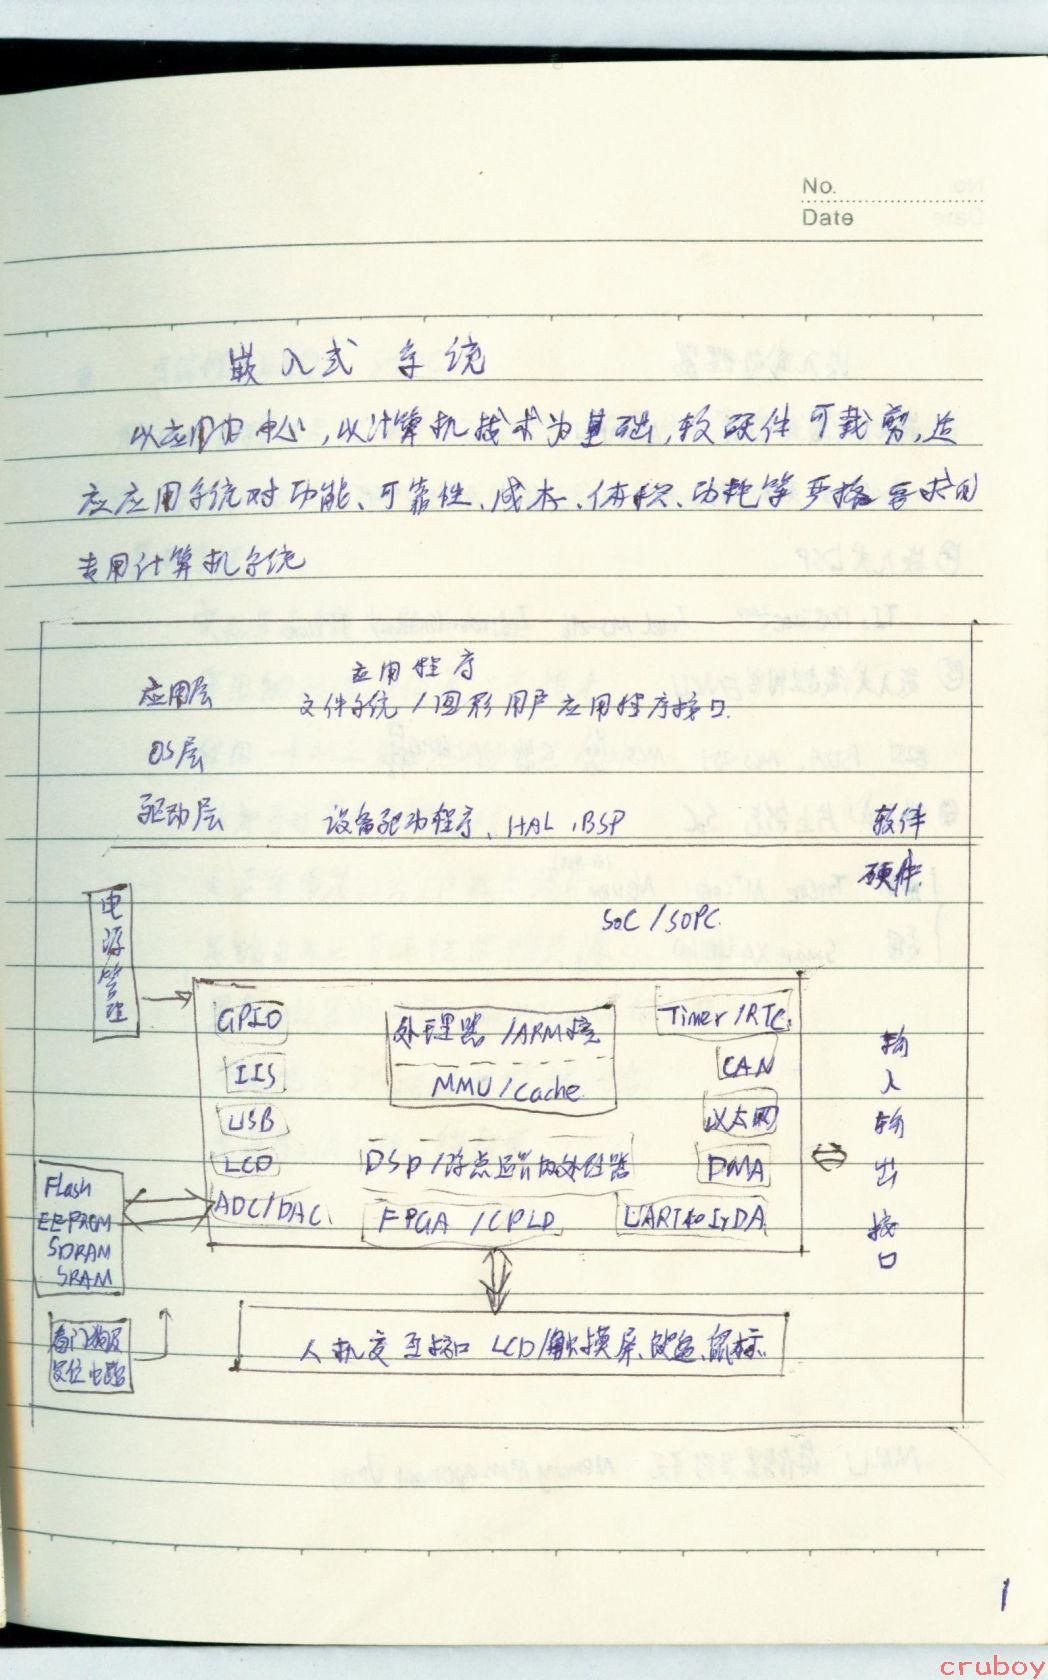 No.
Date
嵌入式系统
以应用为中心,以计算机技术为基础,软硬件可裁剪,适
应应用系统对功能、可靠性、成本、体积、功耗等严格要求的
专用计算机系统
应用程序
应用层 文件系统/图形用户应用程序接口.
OS层
驱动层 设备驱动程序、HAL、BSP 软件
硬件.
SoC/SOPC.
电源管理
GPIO 处理器/ARM核 Timer/RTC.
IIS MMU/Cache. CAN
USB 以太网
LCD DSP/浮点运算协处理器 DMA
ADC/DAC. FPGA/CPLD UART和IrDA
输入输出接口
Flash
EEPROM
SDRAM
SRAM
看门狗及
复位电路
人机交互接口 LCD/触摸屏、键盘、鼠标.
1
cruboy